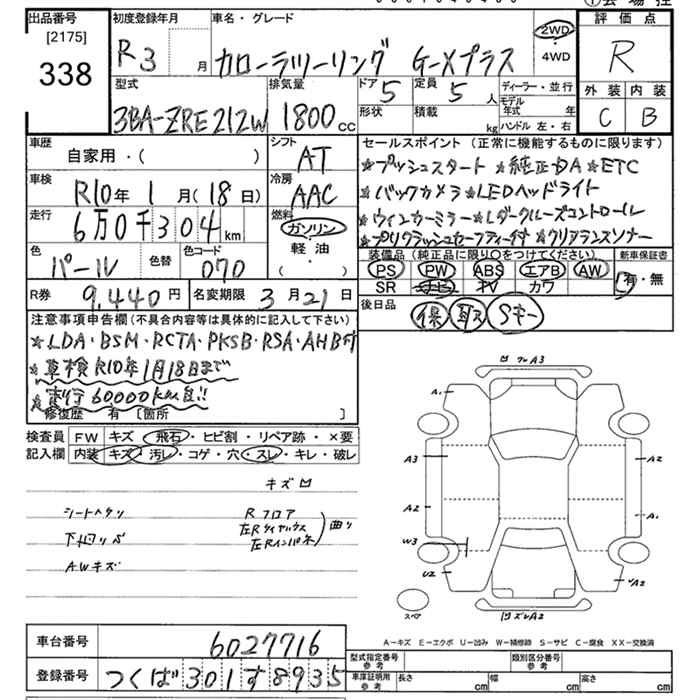 出品番号 初度登録年月 車名・グレード 2WD 評価点
[2175] R3 月 カローラツーリング G-Xプラス 4WD R
338
型式 排気量 ドア 定員 ディーラー・並行 外装 内装
3BA-ZRE212W 1800cc 5 5人 モデル年式 年 C B
形状 積載 kg ハンドル 左・右
車歴 シフト セールスポイント(正常に機能するものに限ります)
自家用・( ) AT ★プッシュスタート ★純正ナビA ★ETC
車検 冷房 ★バックカメラ ★LEDヘッドライト
R10年 1月(18日) AAC ★ウインカーミラー ★レーダークルーズコントロール
走行 燃料 ★プリクラッシュセーフティー付 ★クリアランスソナー
6万0千304km ガソリン・軽油・( )
色 色替 色コード 装備品(純正品に限り○をつけてください) 新車保証書
パール 070 PS PW ABS エアB AW 有・無
SR ナビ TV カワ
R券 9,440円 名変期限 3月21日 後日品 保 取 Sキー
注意事項申告欄(不具合内容等は具体的に記入して下さい)
★LDA・BSM・RCTA・PKSB・RSA・AHB付
★車検R10年1月18日まで
★走行60000km台!!
修復歴 有[箇所 ]
検査員 FW キズ・飛石・ヒビ割・リペア跡・×要
記入欄 内装 キズ・汚レ・コゲ・穴・スレ・キレ・破レ
キズ凹
シートヘタリ Rフロア
下廻りサビ 左Rタイヤハウス 曲り
AWキズ 左Rインパネ
凹 ワレ A3
A1
A3 A2
A2 A1
W3
U2 A2
スペア 凹ズレA2
車台番号 6027716
A-キズ E-エクボ U-凹み W-補修跡 S-サビ C-腐食 XX-交換済
型式指定番号 参考 類別区分番号 参考
登録番号 つくば301す8935 車庫証明用 参考 長さ cm 幅 cm 高さ cm